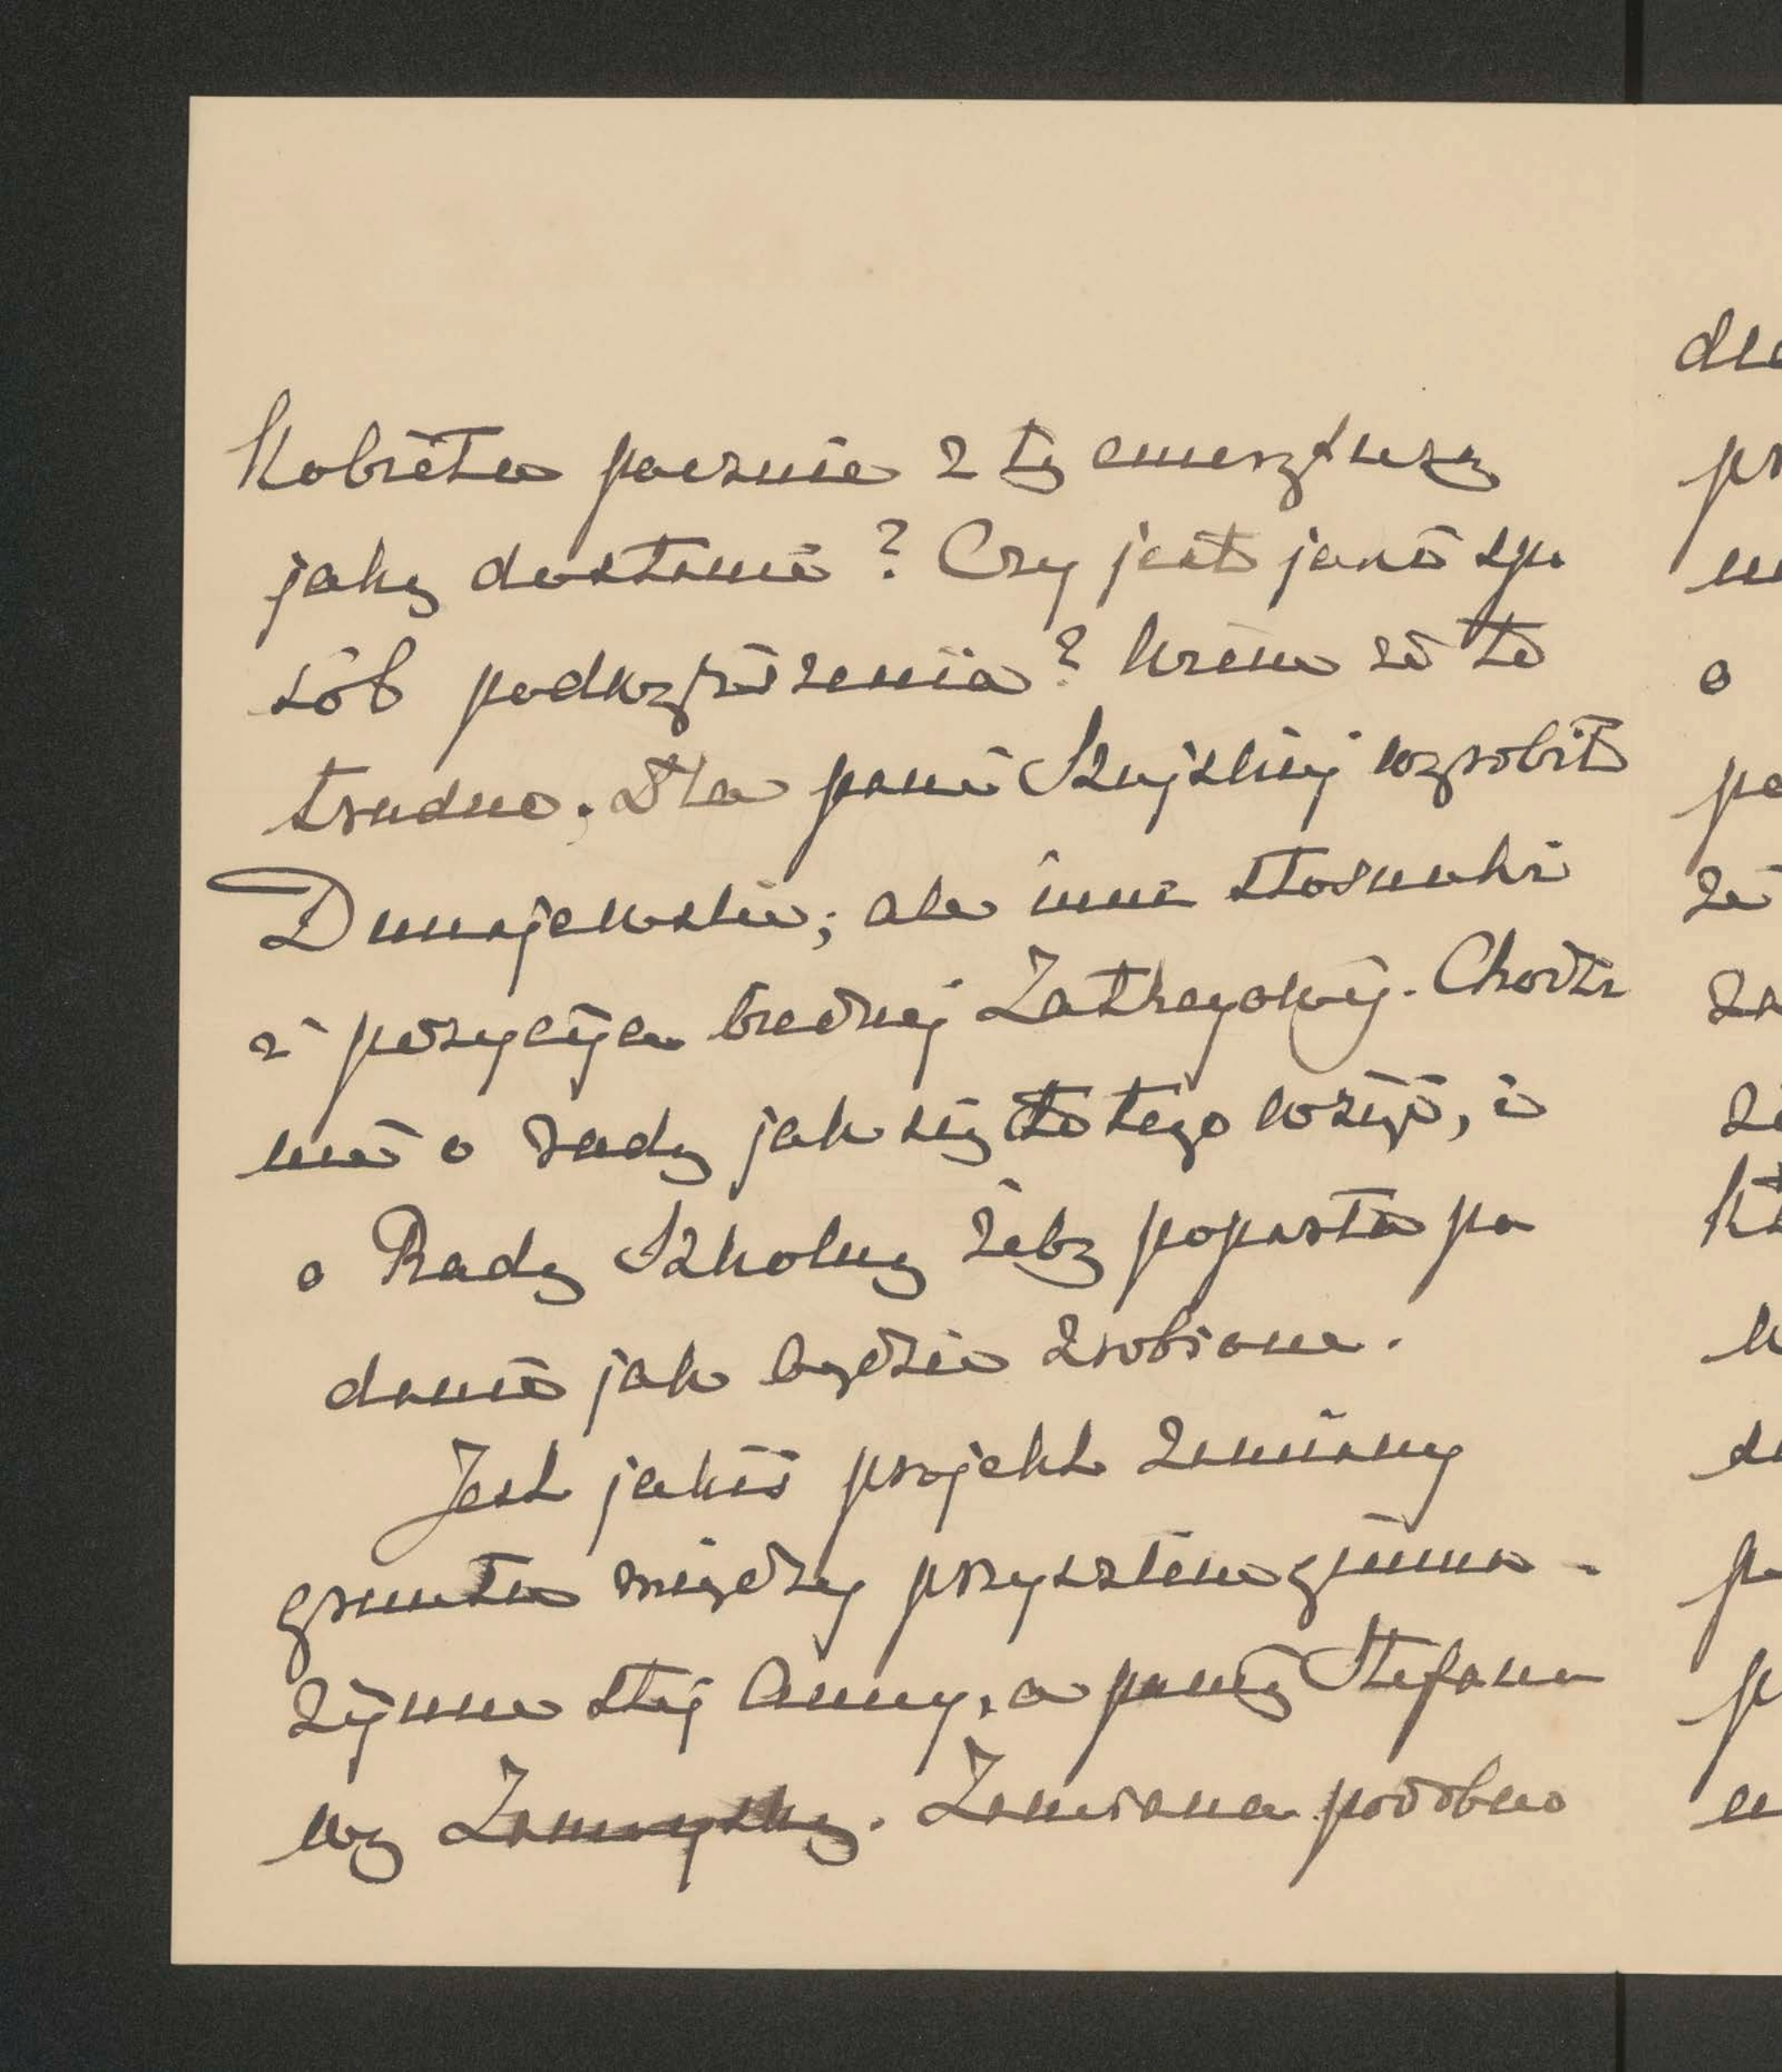 Kobieta pocznie z tą emeryturą
jaką dostanie? Czy jest jaki spo
sób podwyższenia? Wiem że to
trudno. Dla pani Szujskiej wyrobił
Dunajewski; ale inne stosunki
i pozycya biednej Zatheyowej. Chodzi
mi o radę jak się do tego wziąć, i
o Radę Szkolną żeby poparła po
danie jak będzie zrobione.
Jest jakiś projekt zamiany
gruntu między przyszłem gimna-
zyum stej Anny, a panią Stefano
wą Zamoyską. Zamiana podobno